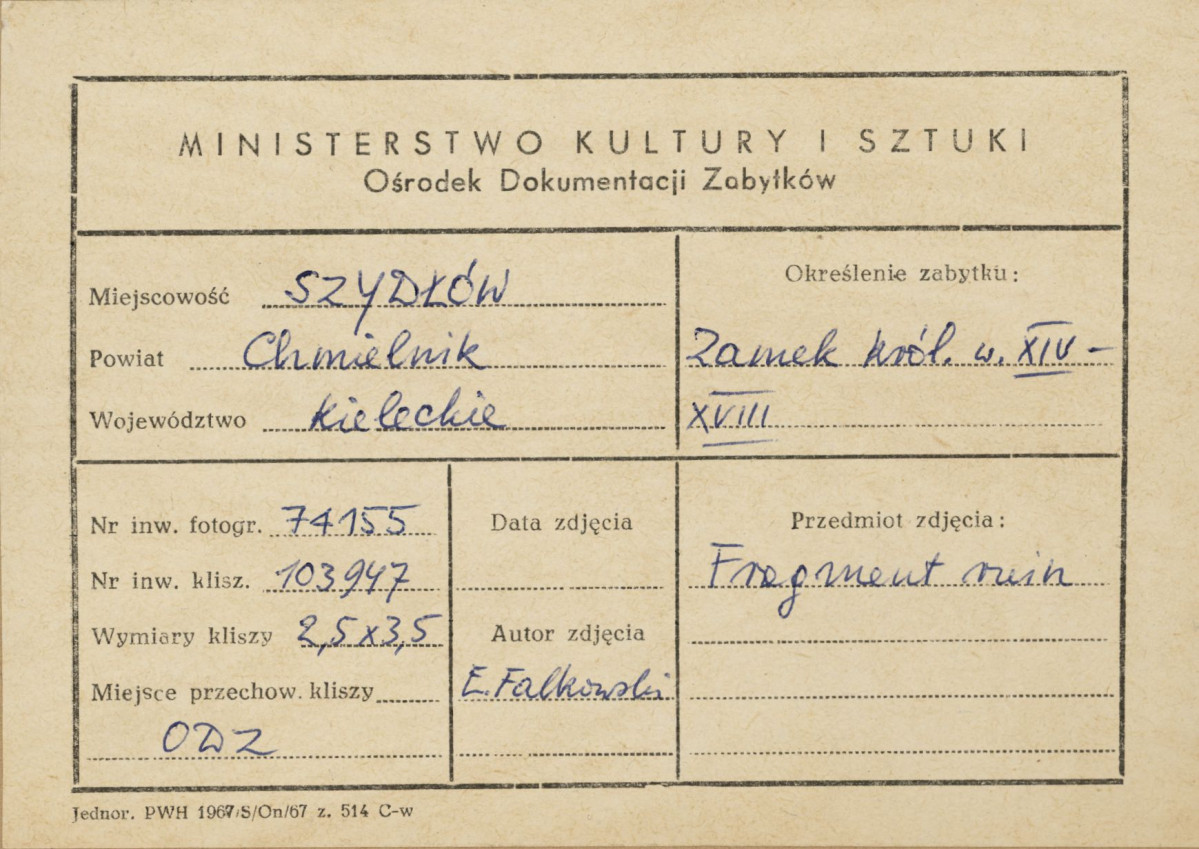 MINISTERSTWO KULTURY I SZTUKI
Ośrodek Dokumentacji Zabytków
Miejscowość SZYDŁÓW
Powiat Chmielnik
Województwo Kieleckie
Określenie zabytku:
Zamek król. w. XIV –
XVIII
Nr inw. fotogr. 74155
Nr inw. klisz. 103947
Wymiary kliszy 2,5x3,5
Miejsce przechow. kliszy
ODZ
Data zdjęcia
Autor zdjęcia
E. Falkowski
Przedmiot zdjęcia:
Fragment ruin
Jednor. PWH 1967/S/On/67 z. 514 C-w